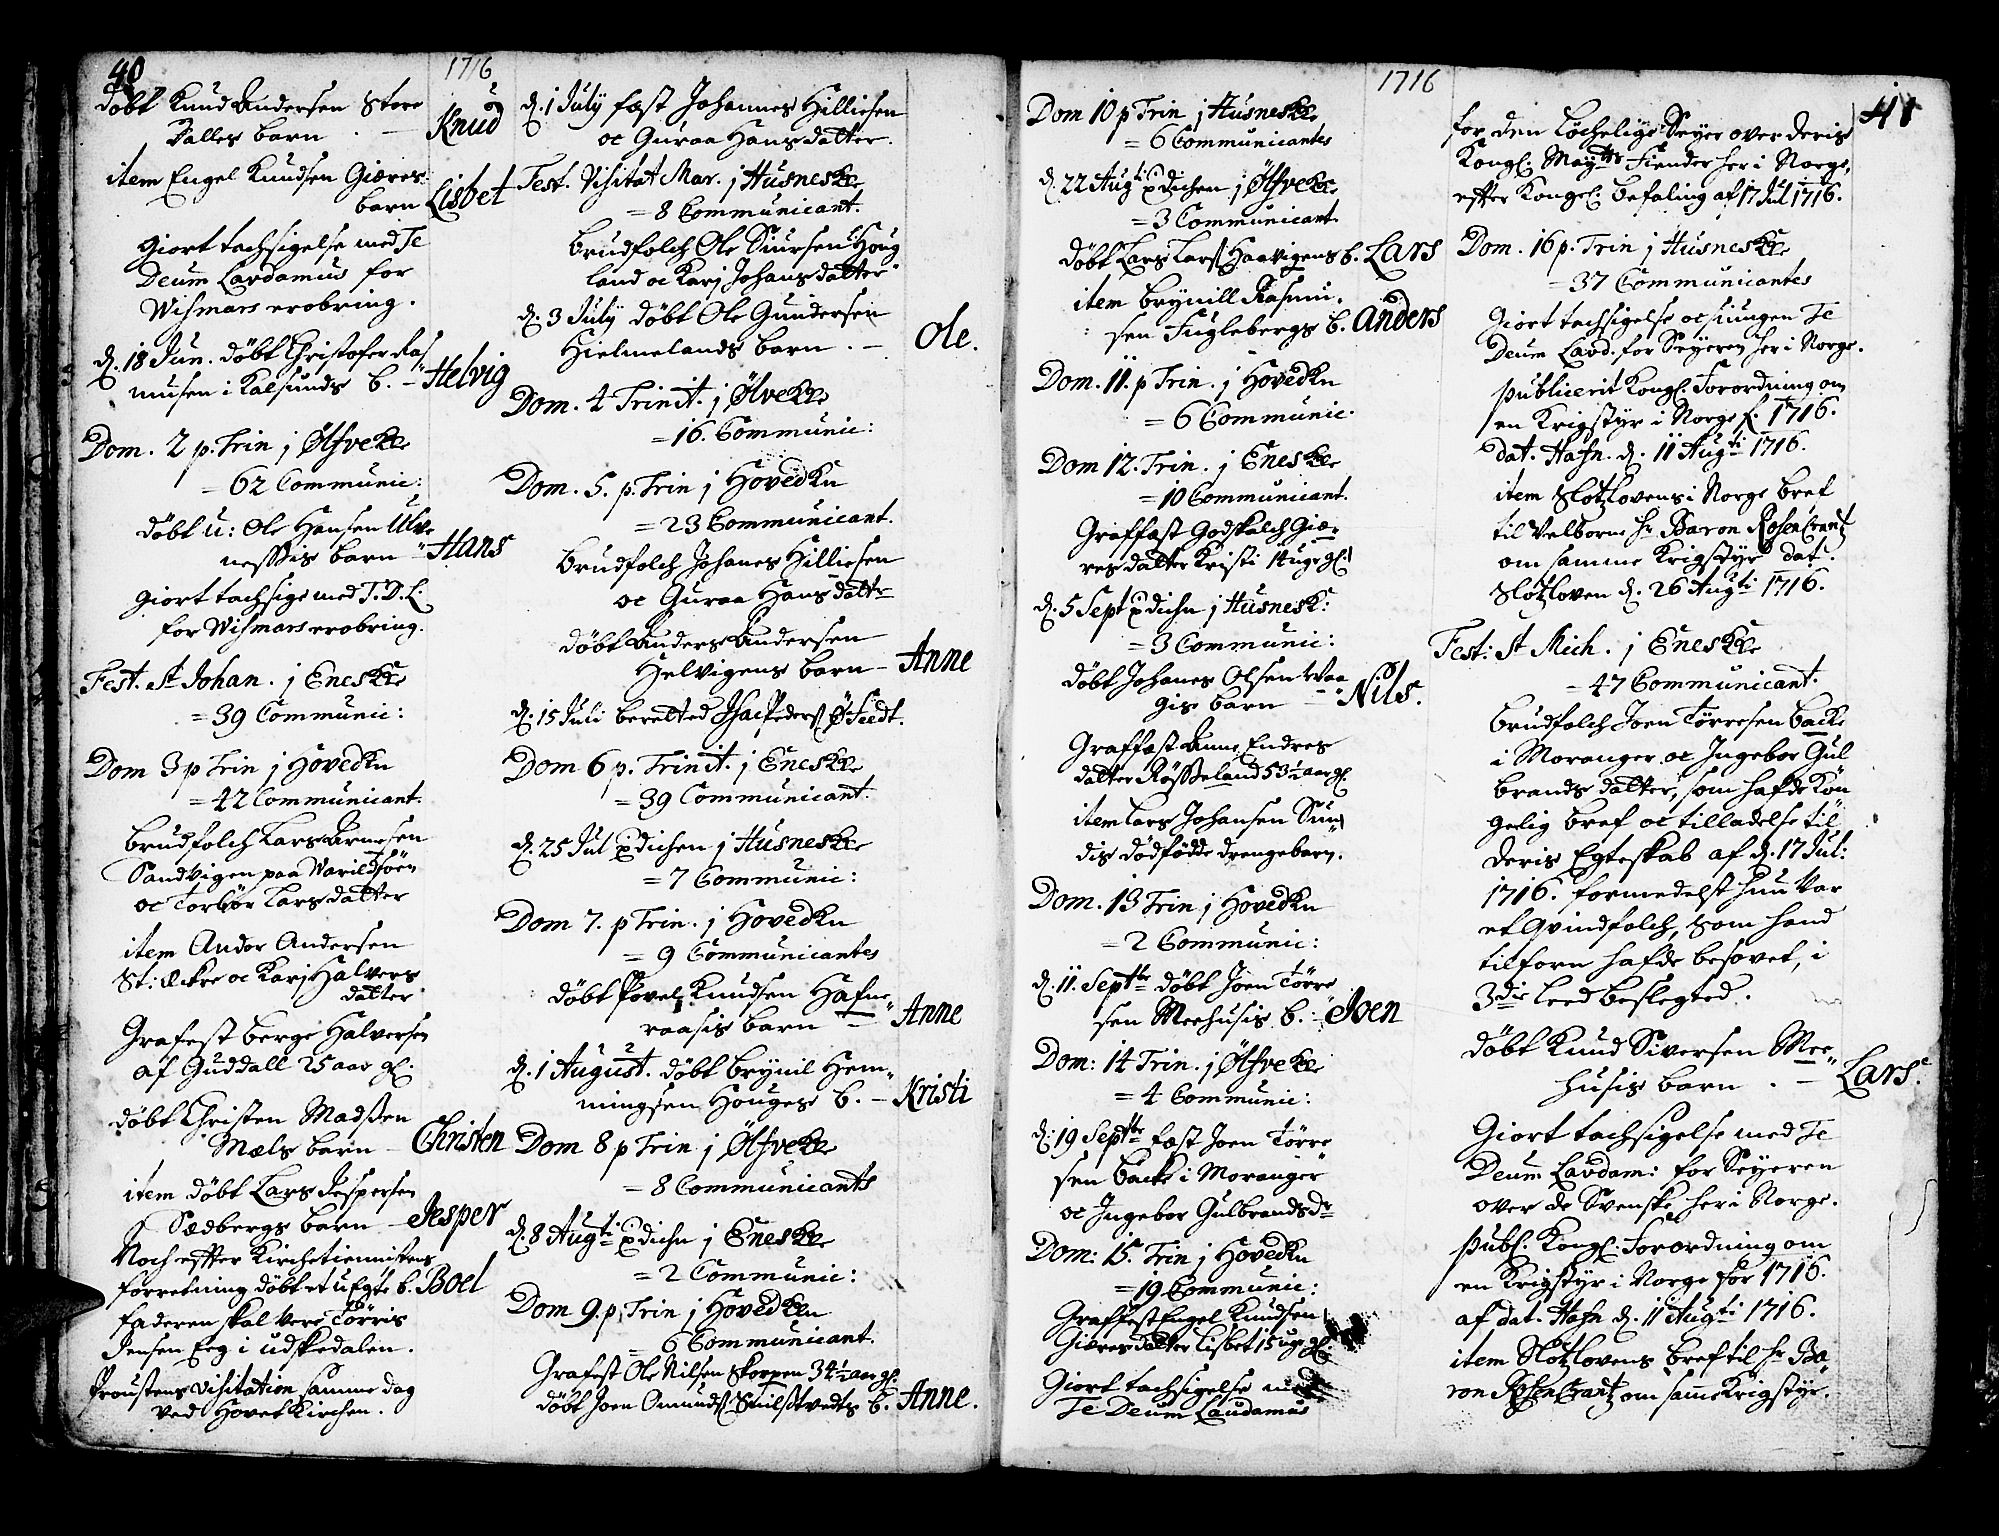 40
1716
døbt Knud Andersen Store
Dalles barn . — Knud
item Engel Knudsen Giæres
barn Lisbet
giort tachsigelse med Te
Deum Lavdamus for
Wismars erobring.
d. 18 Jun. døbt Christofer Ras
musen i Kalsunds b. – Helvig
Dom. 2 p. Trin j Ølfvekke
= 62 Communic:
døbt u: Ole Hansen Ulve
nessis barn – Hans
giort tachsige med T. D. L.
for Wismars erobring.
Fest. St Johan. j Eneskke
= 39 Communic:
Dom 3 p Trin j Hovedkn
= 42 Communicant.
brudfolch Lars Arnesen
Sandvigen paa Varildsøen
oc Torbør Larsdatter
item Andor Andersen
St: Ækre oc Karj Halvers
datter
Grafest berge Halversen
af Guddall 25 aar gl.
døbt Christen Madssen
Mæls barn – Christen
item døbt Lars Jespersen
Sædbergs barn – Jesper
Noch efter Kirchetienistens
forretning døbt et uEgte b. Boel
faderen skal vere Tørris
Jensen Eeg i udskedalen.
Proustens Visitation samme dag
ved Hovet Kirchen.
d. 1 July fæst Johannes Hilliesen
oc Guraa Hansdatter.
Fest. Visitat Mar. j Husneskke
= 8 Communicant.
brudfolch Ole Siursen Houg
land oc Karj Johansdatter
d. 3 July døbt Ole Gundersen
Hielmelands barn . – Ole.
Dom. 4 Trinit. j Ølvekke
= 16. Communic:
Dom. 5. p. Trin j Hovedkn
= 23 Communicant.
brudfolch Johanes Hilliesen
oc Guraa Hansdatter
døbt Anders Andersen
Helvigens barn – Anne
d. 15 Juli beretted Isac Peders Ø. Feedt.
Dom 6 p. Trinit. j Eneskke
= 39 Communicant.
d. 25 Jul dichen j Husneskke
= 7 Communic:
Dom 7. p Trin. j Hovedkn
= 9 Communicantes
døbt Povel Knudsen Hafne
raasis barn – Anne
d. 1 August. døbt brynil Hem
mingsen Houges b. – Kristi
Dom 8 p Trin j Ølfvekke
= 8 Communicants
d. 8 Augti dichn j Eneskke
= 2 Communic:
Dom 9. p. Trin j Hovedken
= 6 Communicant.
Grafest Ole Nilsen Skorpen 34½ aar gl.
døbt Joen Omunds b. Anne.
1716
41
Dom 10 p Trin j Husneskke
= 6 Communicantes
d. 22 Augti dichen j Ølfvekke
= 3 Communicant.
døbt Lars Lars Haavigens b. Lars
item brynill Rasmu
sen Fuglebergs b. Anders
Dom. 11. p Trin. j Hovedkn
= 6 Communic.
Dom 12. Trin. j Eneskke
= 10 Communicant.
Graffæst Godskalch Giæ
res datter Kristi 14 uge gl.
d. 5 Sept dichn j Husnesk:
= 3 Communic:
døbt Johanes Olsen Waa
gis barn – Nils.
Graffæst Anne Endres
datter Røsseland 53½ aar gl.
item Lars Johansen Sun
dis dødfødde drengebarn.
Dom. 13 Trin j Hovedkn
= 2 Communic:
d. 11. Septbr døbt Joen Tørre
sen Meehusis b. – Joen
Dom: 14 Trin. j Ølfvekke
= 4 Communic:
d. 19 Septbr fæst Joen Tørre
sen backe i Moranger
oc Ingebor Gulbrandsdr
Dom: 15. Trin j Hovedkn
= 19 Communic:
Graffæst Engel Knudsen
Giæres datter Lisbet 15 uge gl.
Giort tachsigelse med
Te Deum Laudamus
for den lychelige Seyer over deris
Kongl. Maytts Fiender her i Norge,
efter Kongel. befaling af 17 Jul 1716.
Dom. 16 p. Trin j Husneskke
= 37 Communicantes
Giort tachsigelse oc siungen Te
Deum Lavd. for Seyeren her i Norge.
publicerit Kongl. Forordning om
en Krigstyr i Norge f. 1716.
dat. Hafn. d. 11 Augti 1716.
item Slotzlovens i Norge bref
til Velborne hr Baron Rosencrantz
om samme Krigstyr dat.
Slotzloven d. 26 Augti 1716.
Fest: St Mich. j Eneskke
= 47 Communicant.
brudfolch Joen Tørresen backe
i Moranger oc Ingebor Gul
brands datter, som hafde Kon
gelig bref oc tilladelse til
deris Egteskab af d. 17 Jul:
1716. formedelst hun var
et Qvindfolch, som hand
tilforn hafde besovet, i
3die leed beslegted.
døbt Knud Siversen Mee
husis barn . – Lars.
Giort tachsigelse med Te
Deum Lavdam: for Seyeren
over de Svenske her i Norge.
publ. Kongl. Forordning om
en Krigstyr i Norge for 1716.
af dat. Hafn d. 11 Augti 1716.
item Slotzlovens bref til hr Ba
ron Rosencrantz om same Krigstyr.